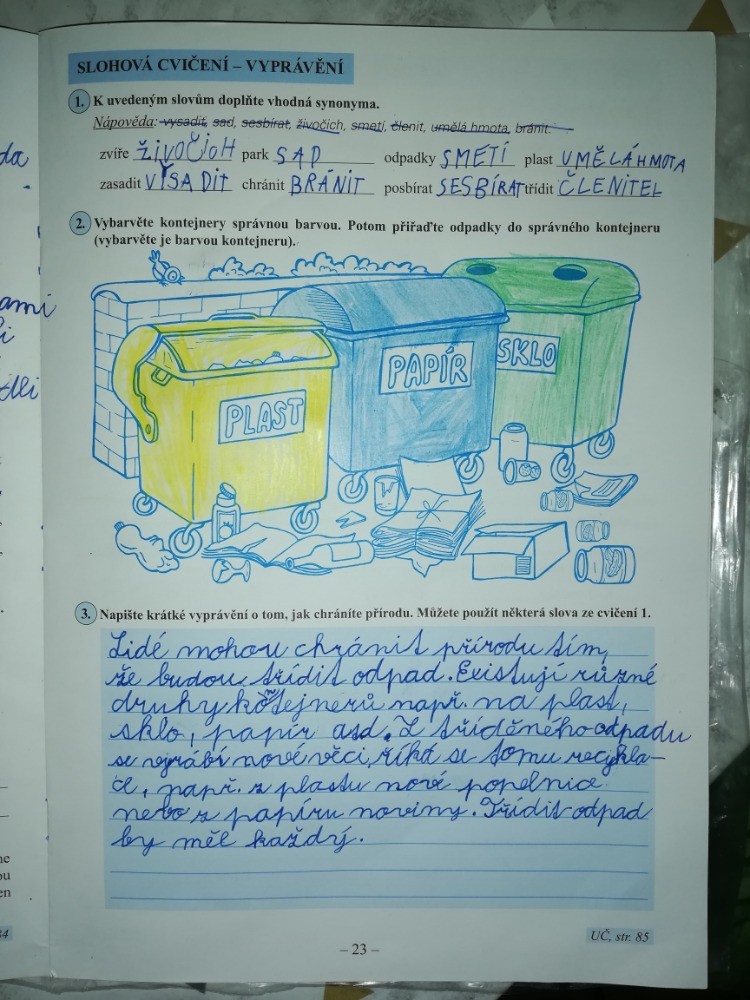 SLOHOVÁ CVIČENÍ – VYPRÁVĚNÍ
1. K uvedeným slovům doplňte vhodná synonyma.
Nápověda: vysadit, sad, sesbírat, živočich, smetí, členit, umělá hmota, bránit.
zvíře ŽIVOČICH park SAD odpadky SMETÍ plast UMĚLÁ HMOTA
zasadit VYSADIT chránit BRÁNIT posbírat SESBÍRAT třídit ČLENITEL
2. Vybarvěte kontejnery správnou barvou. Potom přiřaďte odpadky do správného kontejneru
(vybarvěte je barvou kontejneru).
PLAST
PAPÍR
SKLO
3. Napište krátké vyprávění o tom, jak chráníte přírodu. Můžete použít některá slova ze cvičení 1.
Lidé mohou chránit přírodu tím,
že budou třídit odpad. Existují různé
druhy kontejnerů např. na plast,
sklo, papír atd. Z tříděného odpadu
se vyrábí nové věci, říká se tomu recykla-
ce, např. z plastu nové popelnice
nebo z papíru noviny. Třídit odpad
by měl každý.
– 23 –
UČ, str. 85